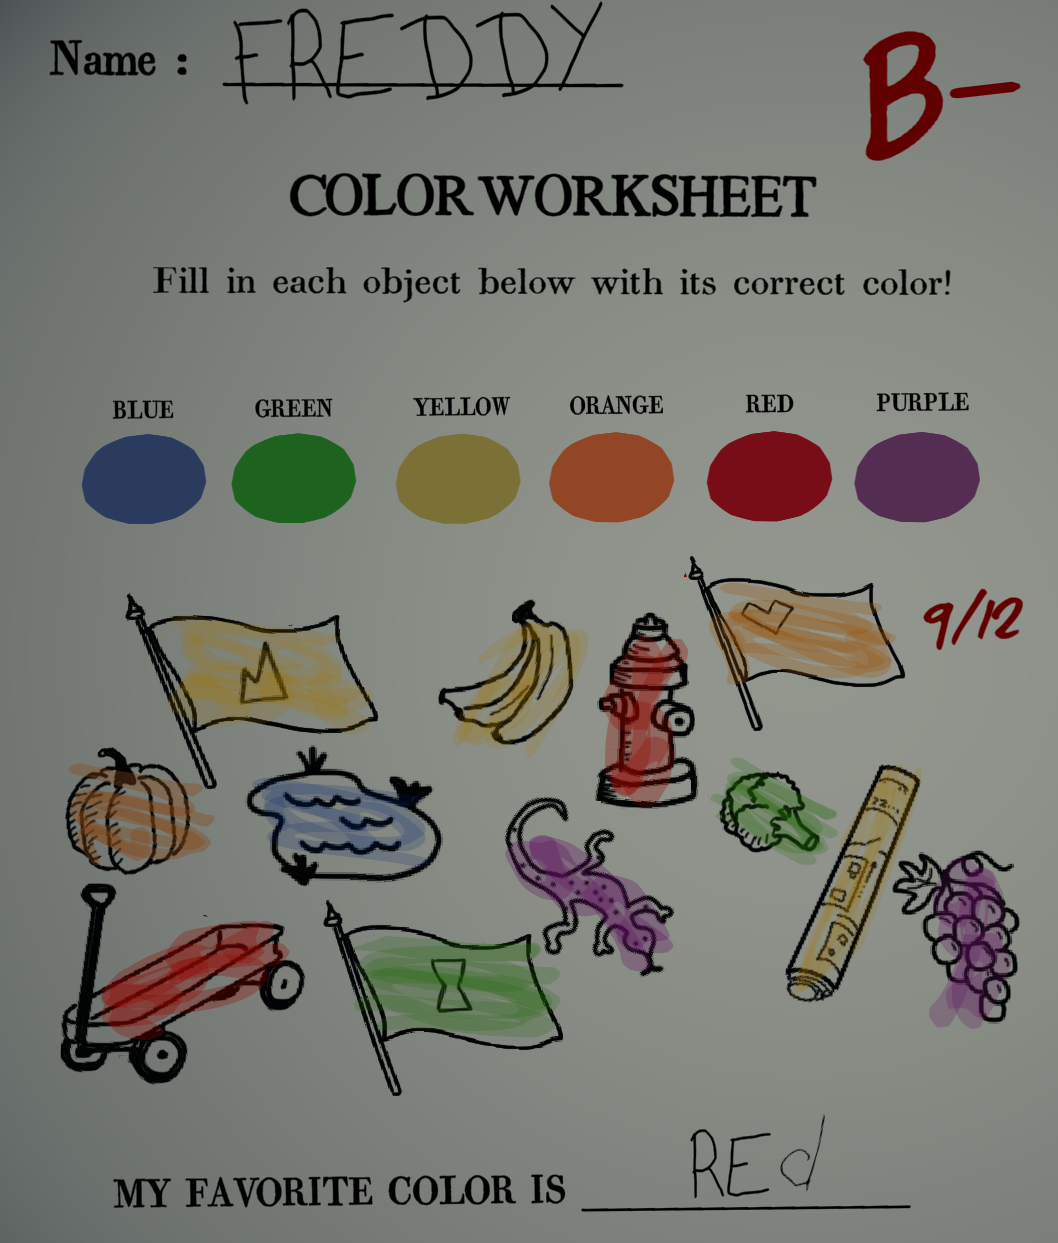 Name : FREDDY
B-
COLOR WORKSHEET
Fill in each object below with its correct color!
BLUE GREEN YELLOW ORANGE RED PURPLE
9/12
MY FAVORITE COLOR IS REd